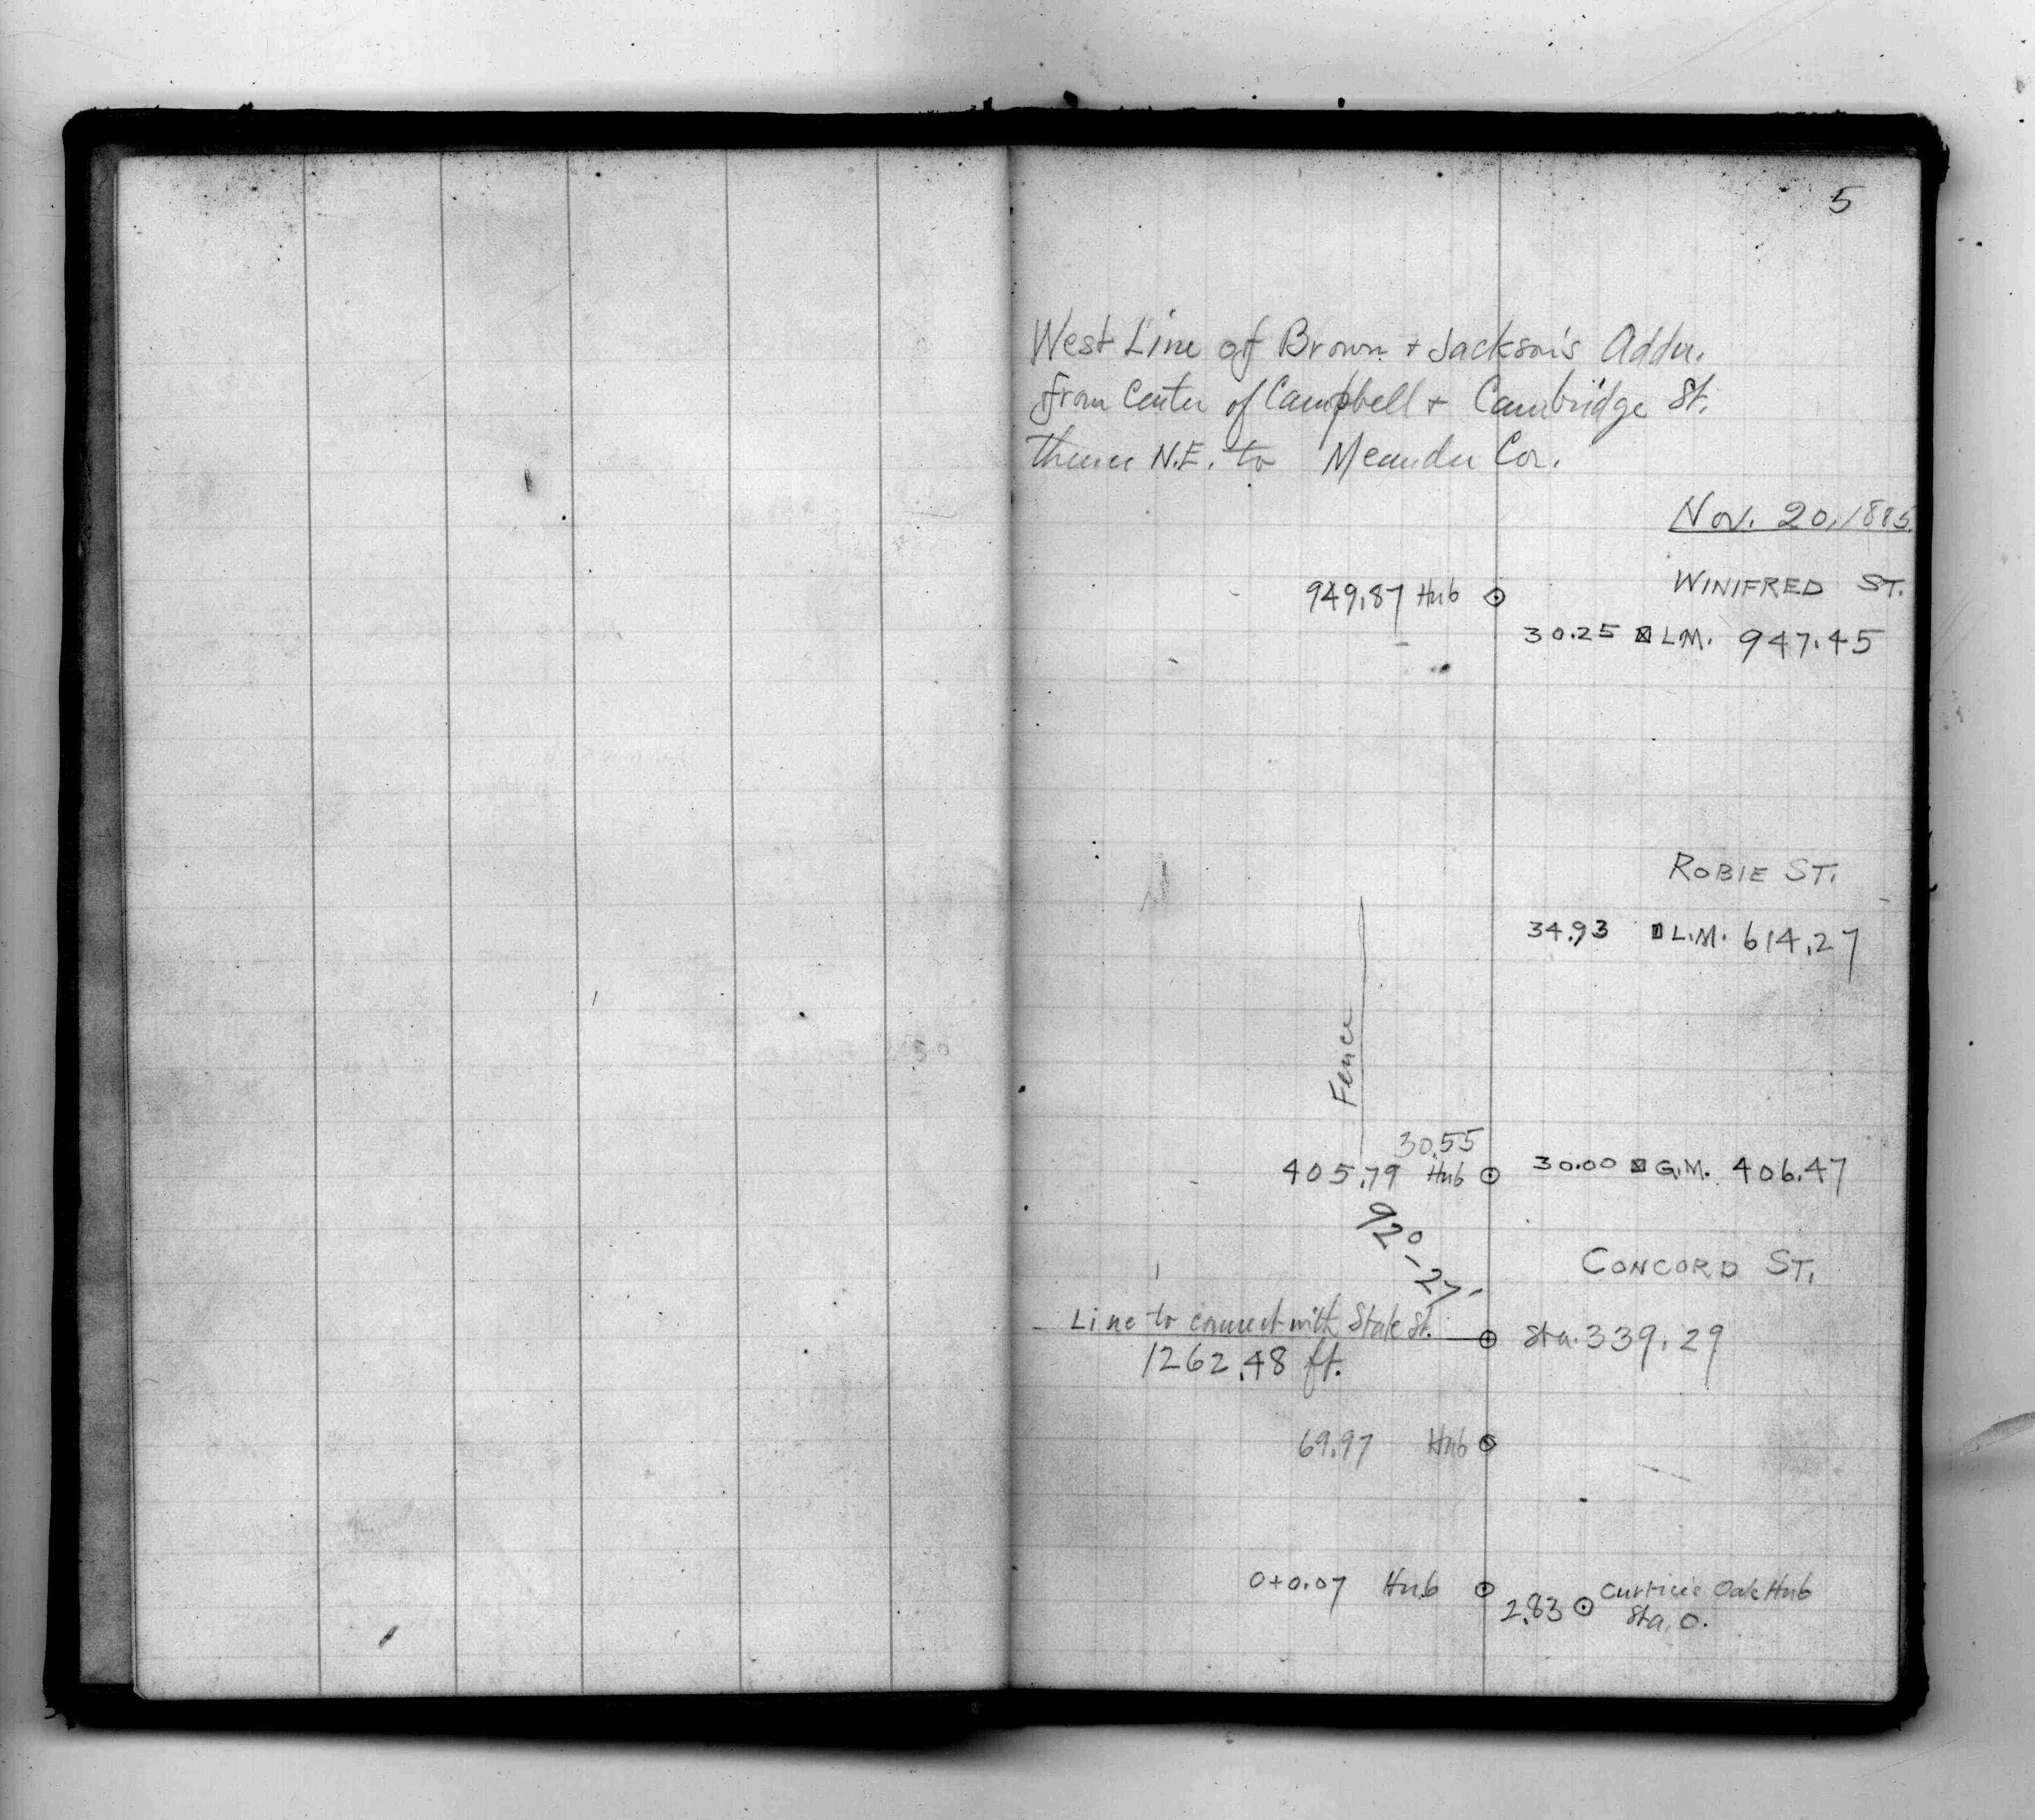 5
West Line of Brown + Jackson's Addn.
from Center of Campbell + Cambridge St.
thence N.E. to Meander Cor.
Nov. 20, 1885.
WINIFRED ST.
949.87 Hub
30.25 L.M. 947.45
ROBIE ST.
34.93 L.M. 614.27
Fence
30.55
405.79 Hub 30.00 G.M. 406.47
92°-27'
CONCORD ST.
Line to connect with State St. Sta. 339.29
1262.48 ft.
69.97 Hub
0+0.07 Hub 2.83 Curtice's Oak Hub
Sta. 0.